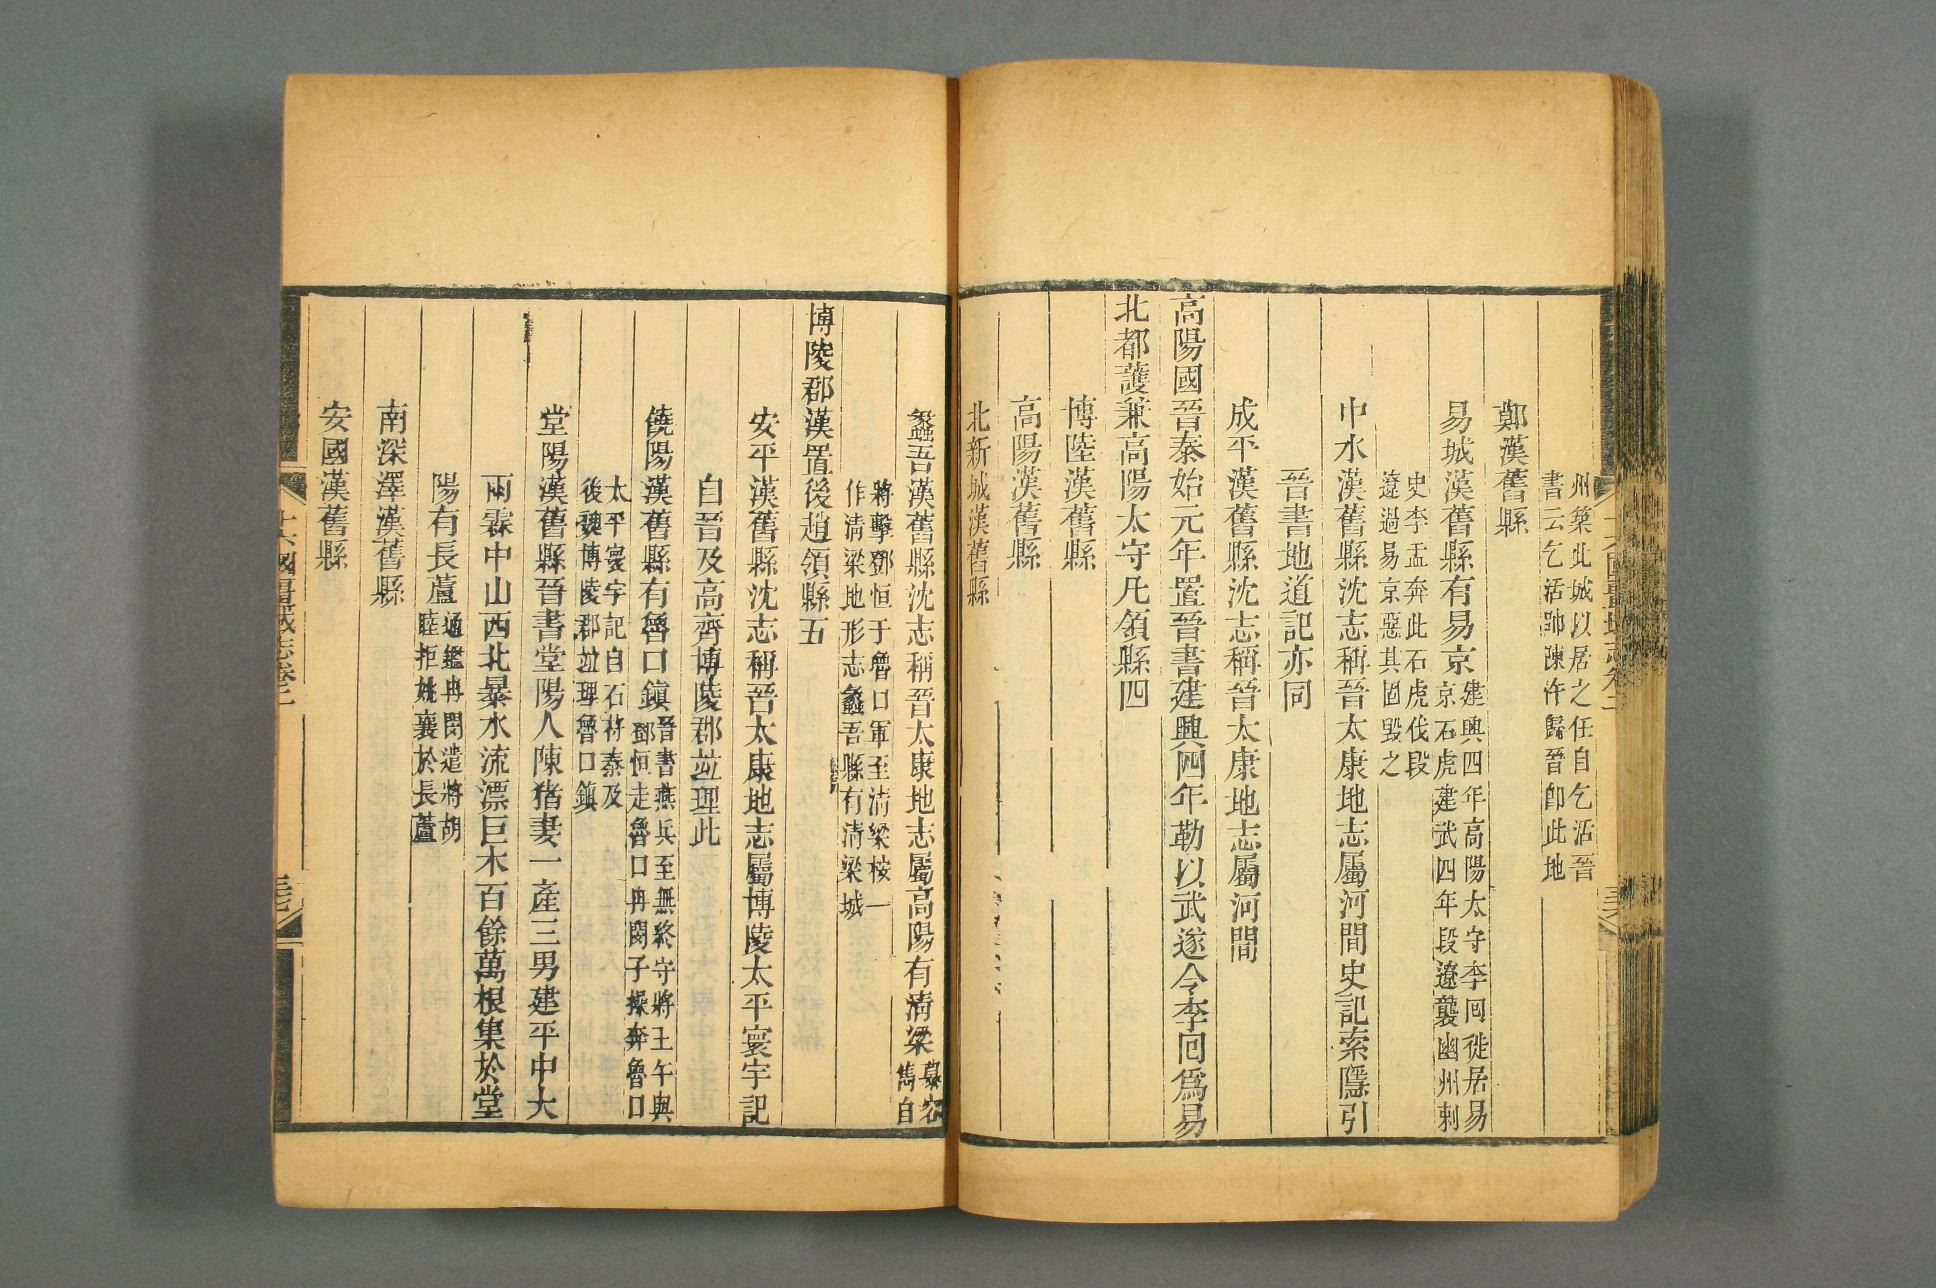 州築此城以居之任自乞活晉
書云乞活帥陳午歸晉卽此地
鄚漢舊縣
易城漢舊縣有易京建興四年高陽太守李回徙居易
京石虎建武四年段遼襲幽州刺
史李孟奔此石虎伐段
遼過易京惡其固毀之
中水漢舊縣沈志稱晉太康地志屬河間史記索隱引
晉書地道記亦同
成平漢舊縣沈志稱晉太康地志屬河間
高陽國晉泰始元年置晉書建興四年勒以武遂令李回爲易
北都護兼高陽太守凡領縣四
博陸漢舊縣
高陽漢舊縣
北新城漢舊縣
蠡吾漢舊縣沈志稱晉太康地志屬高陽有淸梁慕容
雋自
將擊鄧恒于魯口軍至淸梁桉一
作淸梁地形志蠡吾縣有淸梁城
博陵郡漢置後趙領縣五
安平漢舊縣沈志稱晉太康地志屬博陵太平寰宇記
自晉及高齊博陵郡竝理此
饒陽漢舊縣有魯口鎭晉書燕兵至無終守將王午與
鄧恒走魯口冉閔子操奔魯口
太平寰宇記自石苻秦及
後魏博陵郡竝理魯口鎭
堂陽漢舊縣晉書堂陽人陳豬妻一產三男建平中大
雨霖中山西北暴水流漂巨木百餘萬根集於堂
陽有長蘆通鑑冉閔遣將胡
睦拒姚襄於長蘆
南深澤漢舊縣
安國漢舊縣
十六國疆域志卷二